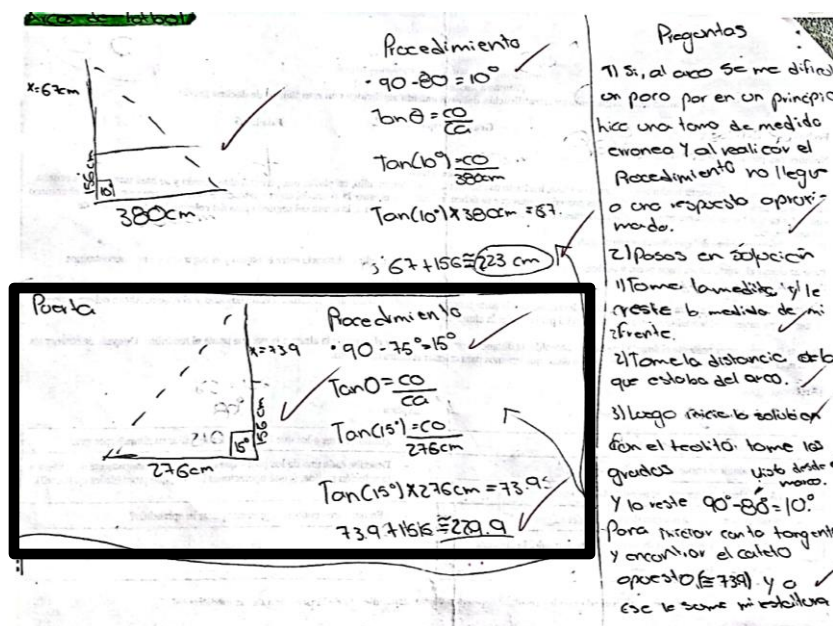 Arcos de fotbol
x=67cm
156 cm
10°
380cm
Procedimiento
· 90-80=10°
Tanθ = co/ca
Tan(10°) = co/380cm
Tan(10°) x 380cm = 67.
67+156≅223 cm
Puerta
x=73.9
156 cm
15°
276cm
Procedimiento
· 90-75°=15°
Tanθ = co/ca
Tan(15°) = co/276cm
Tan(15°) x 276cm = 73.95
73.9+156≅229.9
Preguntas
1) Si, al arco se me dificul
un poco por en un principio
hice una toma de medida
erronea y al realizar el
Procedimiento no llegue
a una respuesta aproxi-
mada.
2) Pasos en solucion
1) Tome la medida y le
reste la medida de mi
frente
2) Tome la distancia
que estaba del arco.
3) Luego inicie la solucion
con el teolito. tome los
grados visto desde el
marco.
y lo reste 90°-80=10°.
Para iniciar con la tangente
y encontrar el cateto
opuesto (≅739) y a
ese le sume mi estatura